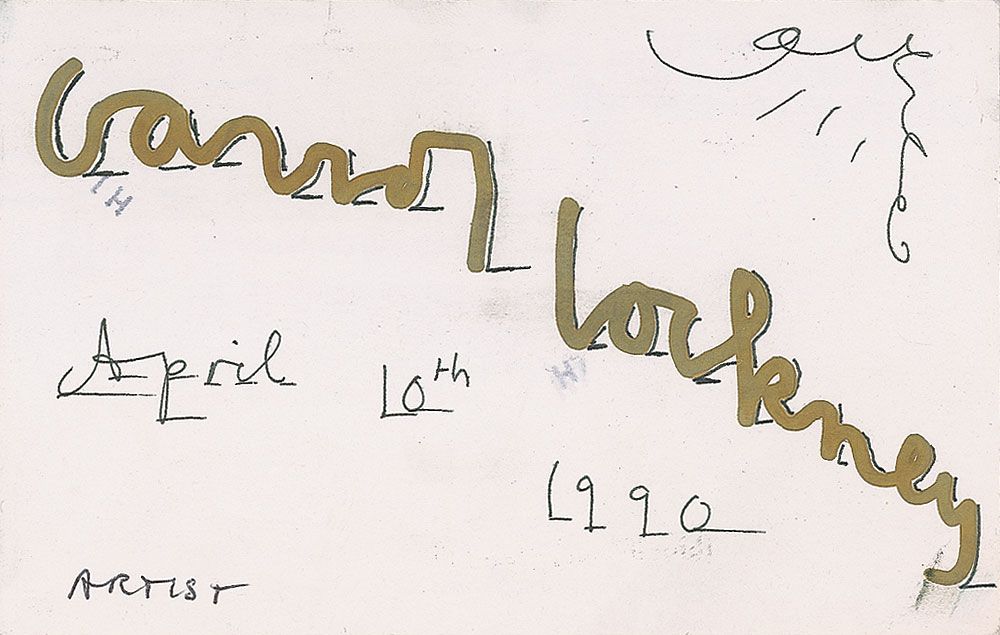 lockney
April 10th
1990
ARTIST